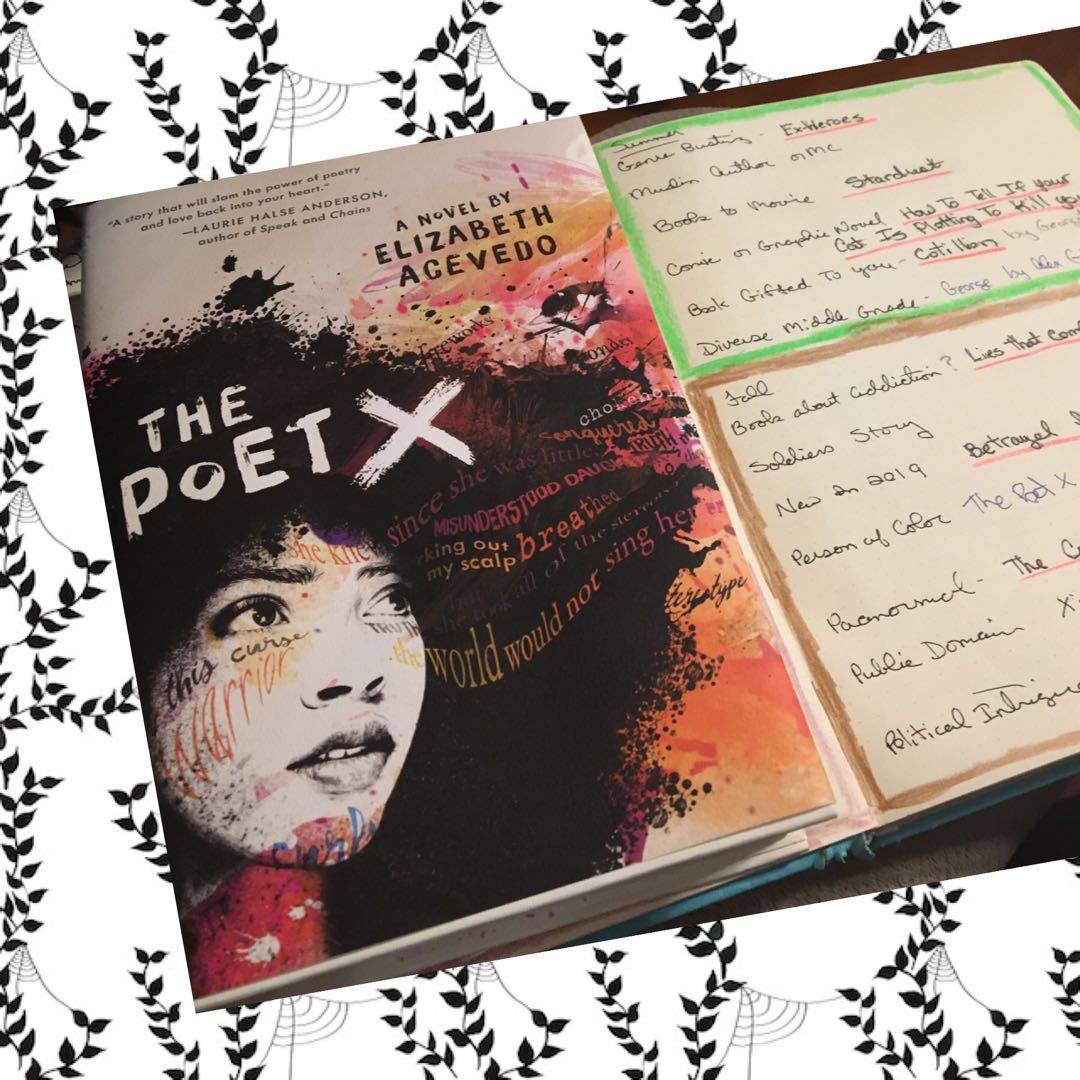 "A story that will slam the power of poetry
and love back into your heart."
—LAURIE HALSE ANDERSON,
author of Speak and Chains
A NOVEL BY
ELIZABETH
ACEVEDO
THE
POET X
fireworks
since she was little.
conquered
TRUTH
MISUNDERSTOOD
she knew
rking out
my scalp
breathed
all of the
would not sing her
world
stereotype
TRUTH
the
this curse
warrior
Summer
Genre Busting - Ex-Heroes
Muslim Author or MC
Book to Movie Stardust
Comic or Graphic Novel How To Tell If Your
Cat Is Plotting To Kill You
Book Gifted To you - Cotillion by George
Diverse Middle Grade - George by Alex G
Fall
Book about addiction? Lies that
Soldiers Story
New in 2019 Betrayal
Person of Color The Poet X
Paranormal - The
Public Domain
Political Intrigue